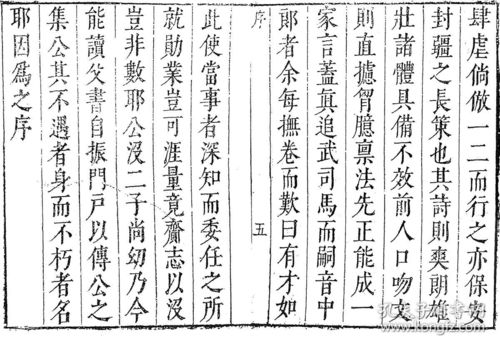 肆虐倘倣一二而行之亦保安
封疆之長策也其詩則爽朗雄
壯諸體具備不效前人口吻文
則直攄胷臆禀法先正能成一
家言蓋眞追武司馬而嗣音中
郎者余每撫卷而歎曰有才如
序 五
此使當事者深知而委任之所
就勛業豈可涯量竟齎志以沒
豈非數耶公沒二子尚幼乃今
能讀父書自振門戶以傳公之
集公其不遇者身而不朽者名
耶因爲之序
孔夫子舊書網
www.kongfz.com